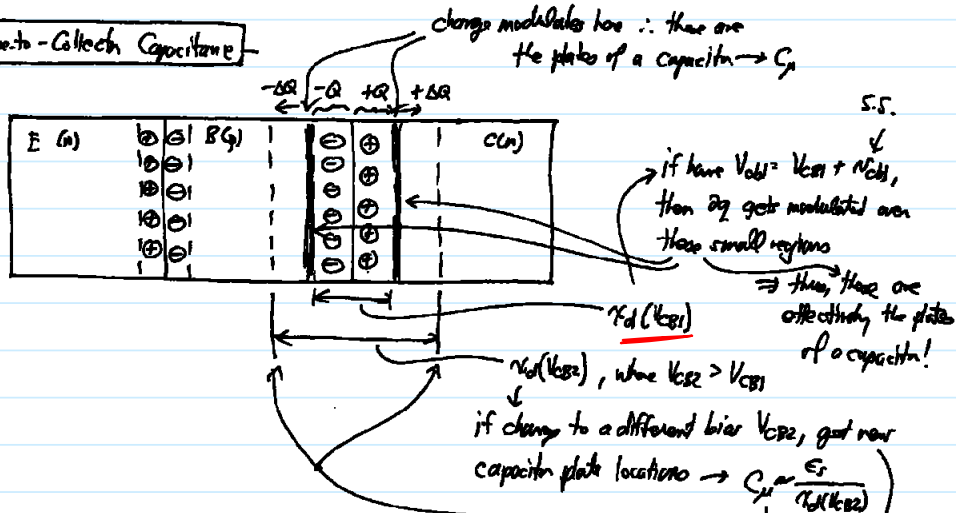 e-to-Collector Capacitance
charge modulates here ∴ these are
the plates of a capacitor → Cμ
-ΔQ -Q +Q +ΔQ
S.S.
E (n) B(p) C(n)
if have Vcb1 = VCB1 + vcb1,
then ∂q gets modulated over
these small regions
⇒ thus, these are
effectively the plates
of a capacitor!
xd(VCB1)
xd(VCB2), where VCB2 > VCB1
if change to a different bias VCB2, get new
capacitor plate locations → Cμ ~ εs / xd(VCB2)